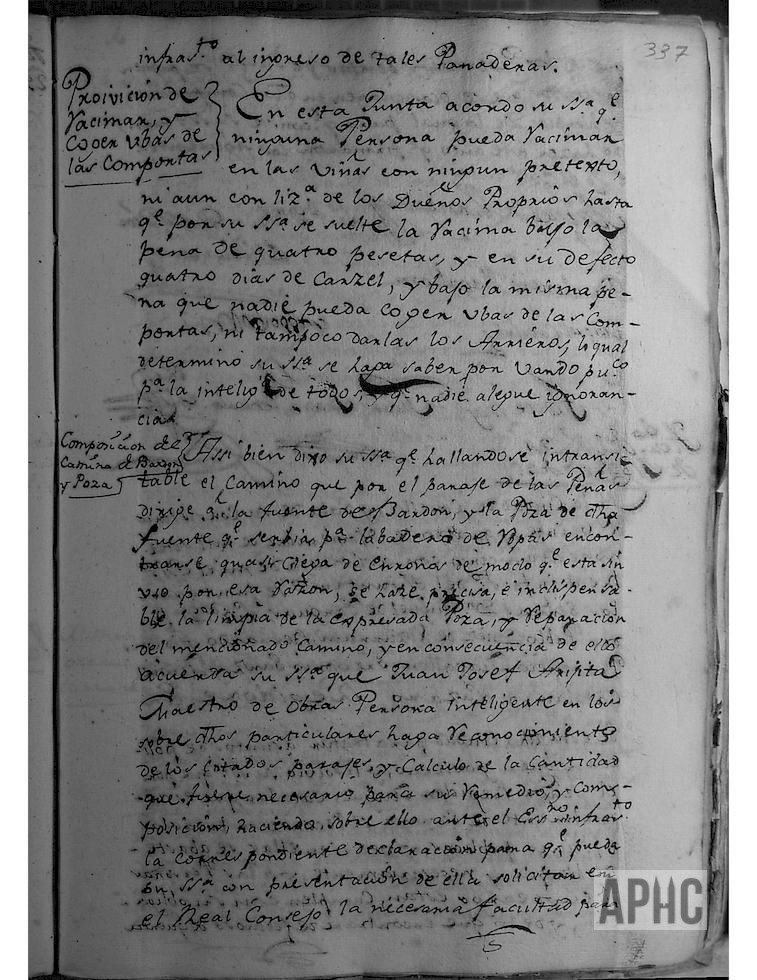 337
infras.to al ingreso de tales Panaderas.
Proivición de
Racimar, y
Coger ubas de
las Comportas
En esta Junta acordo su ssª. q.e
ninguna Persona pueda Racimar
en las viñas con ningun pretexto,
ni aun con liz.ª de los Dueños Proprios hasta
q.e por su ssª se suelte la Racima bajo la
pena de quatro pesetas, y en su defecto
quatro dias de Carzel, y bajo la misma pe-
na que nadie pueda coger ubas de las Com-
portas, ni tampoco darlas los Arrieros, lo qual
determinó su ssª se haga saber por vando pu.co
pª la intelig.ª de todos, y q.e nadie alegue ignoran-
cia.
Composicion del
Camino de Bardon
y Poza
Assi bien dixo su ssª q.e hallandose intransi-
table el Camino que por el parage de las Peñas
dirige a la fuente de Bardon, y la Poza de dha
fuente q.e serbia pª labadero de Ropas encon-
trarse quasi Ciega de modo q.e está sin
uso por esa Razon, se haze precisa, é indispensa-
ble la limpia de la expresada Poza, y Reparacion
del mencionado Camino, y en consecuencia de ello
acuerda su ssª que Juan Josef Argita
Maestro de Obras Persona inteligente en los
sobre dhos particulares haga Reconocimiento
de los Citados parages, y Calculo de la Cantidad
que fuere necesario para su Remedio, y Com-
posicion, haciendo sobre ello ante el Ess.no infras.to
la correspondiente declaración para q.e pueda
su ssª con presentación de ella solicitar en
el Real Consejo la necesaria facultad para
APHC